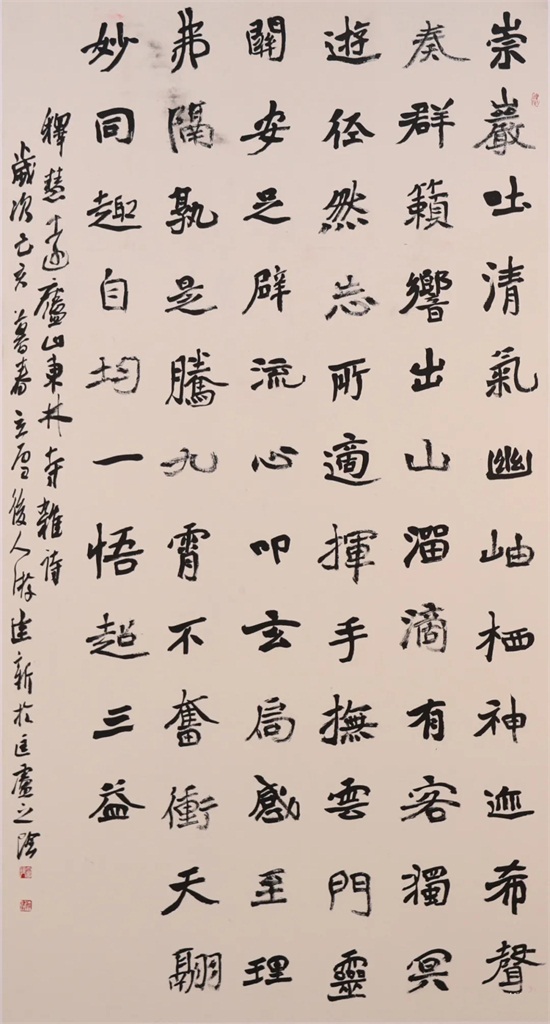 崇巖吐清氣幽岫栖神迹希聲
奏群籟響出山溜滴有客獨冥
遊径然忘所適揮手撫雲門靈
關安足辟流心叩玄扃感至理
弗隔孰是騰九霄不奮衝天翮
妙同趣自均一悟超三益
釋慧遠廬山東林寺雜詩
歲次己亥暮春立雪後人游建新於匡廬之陰